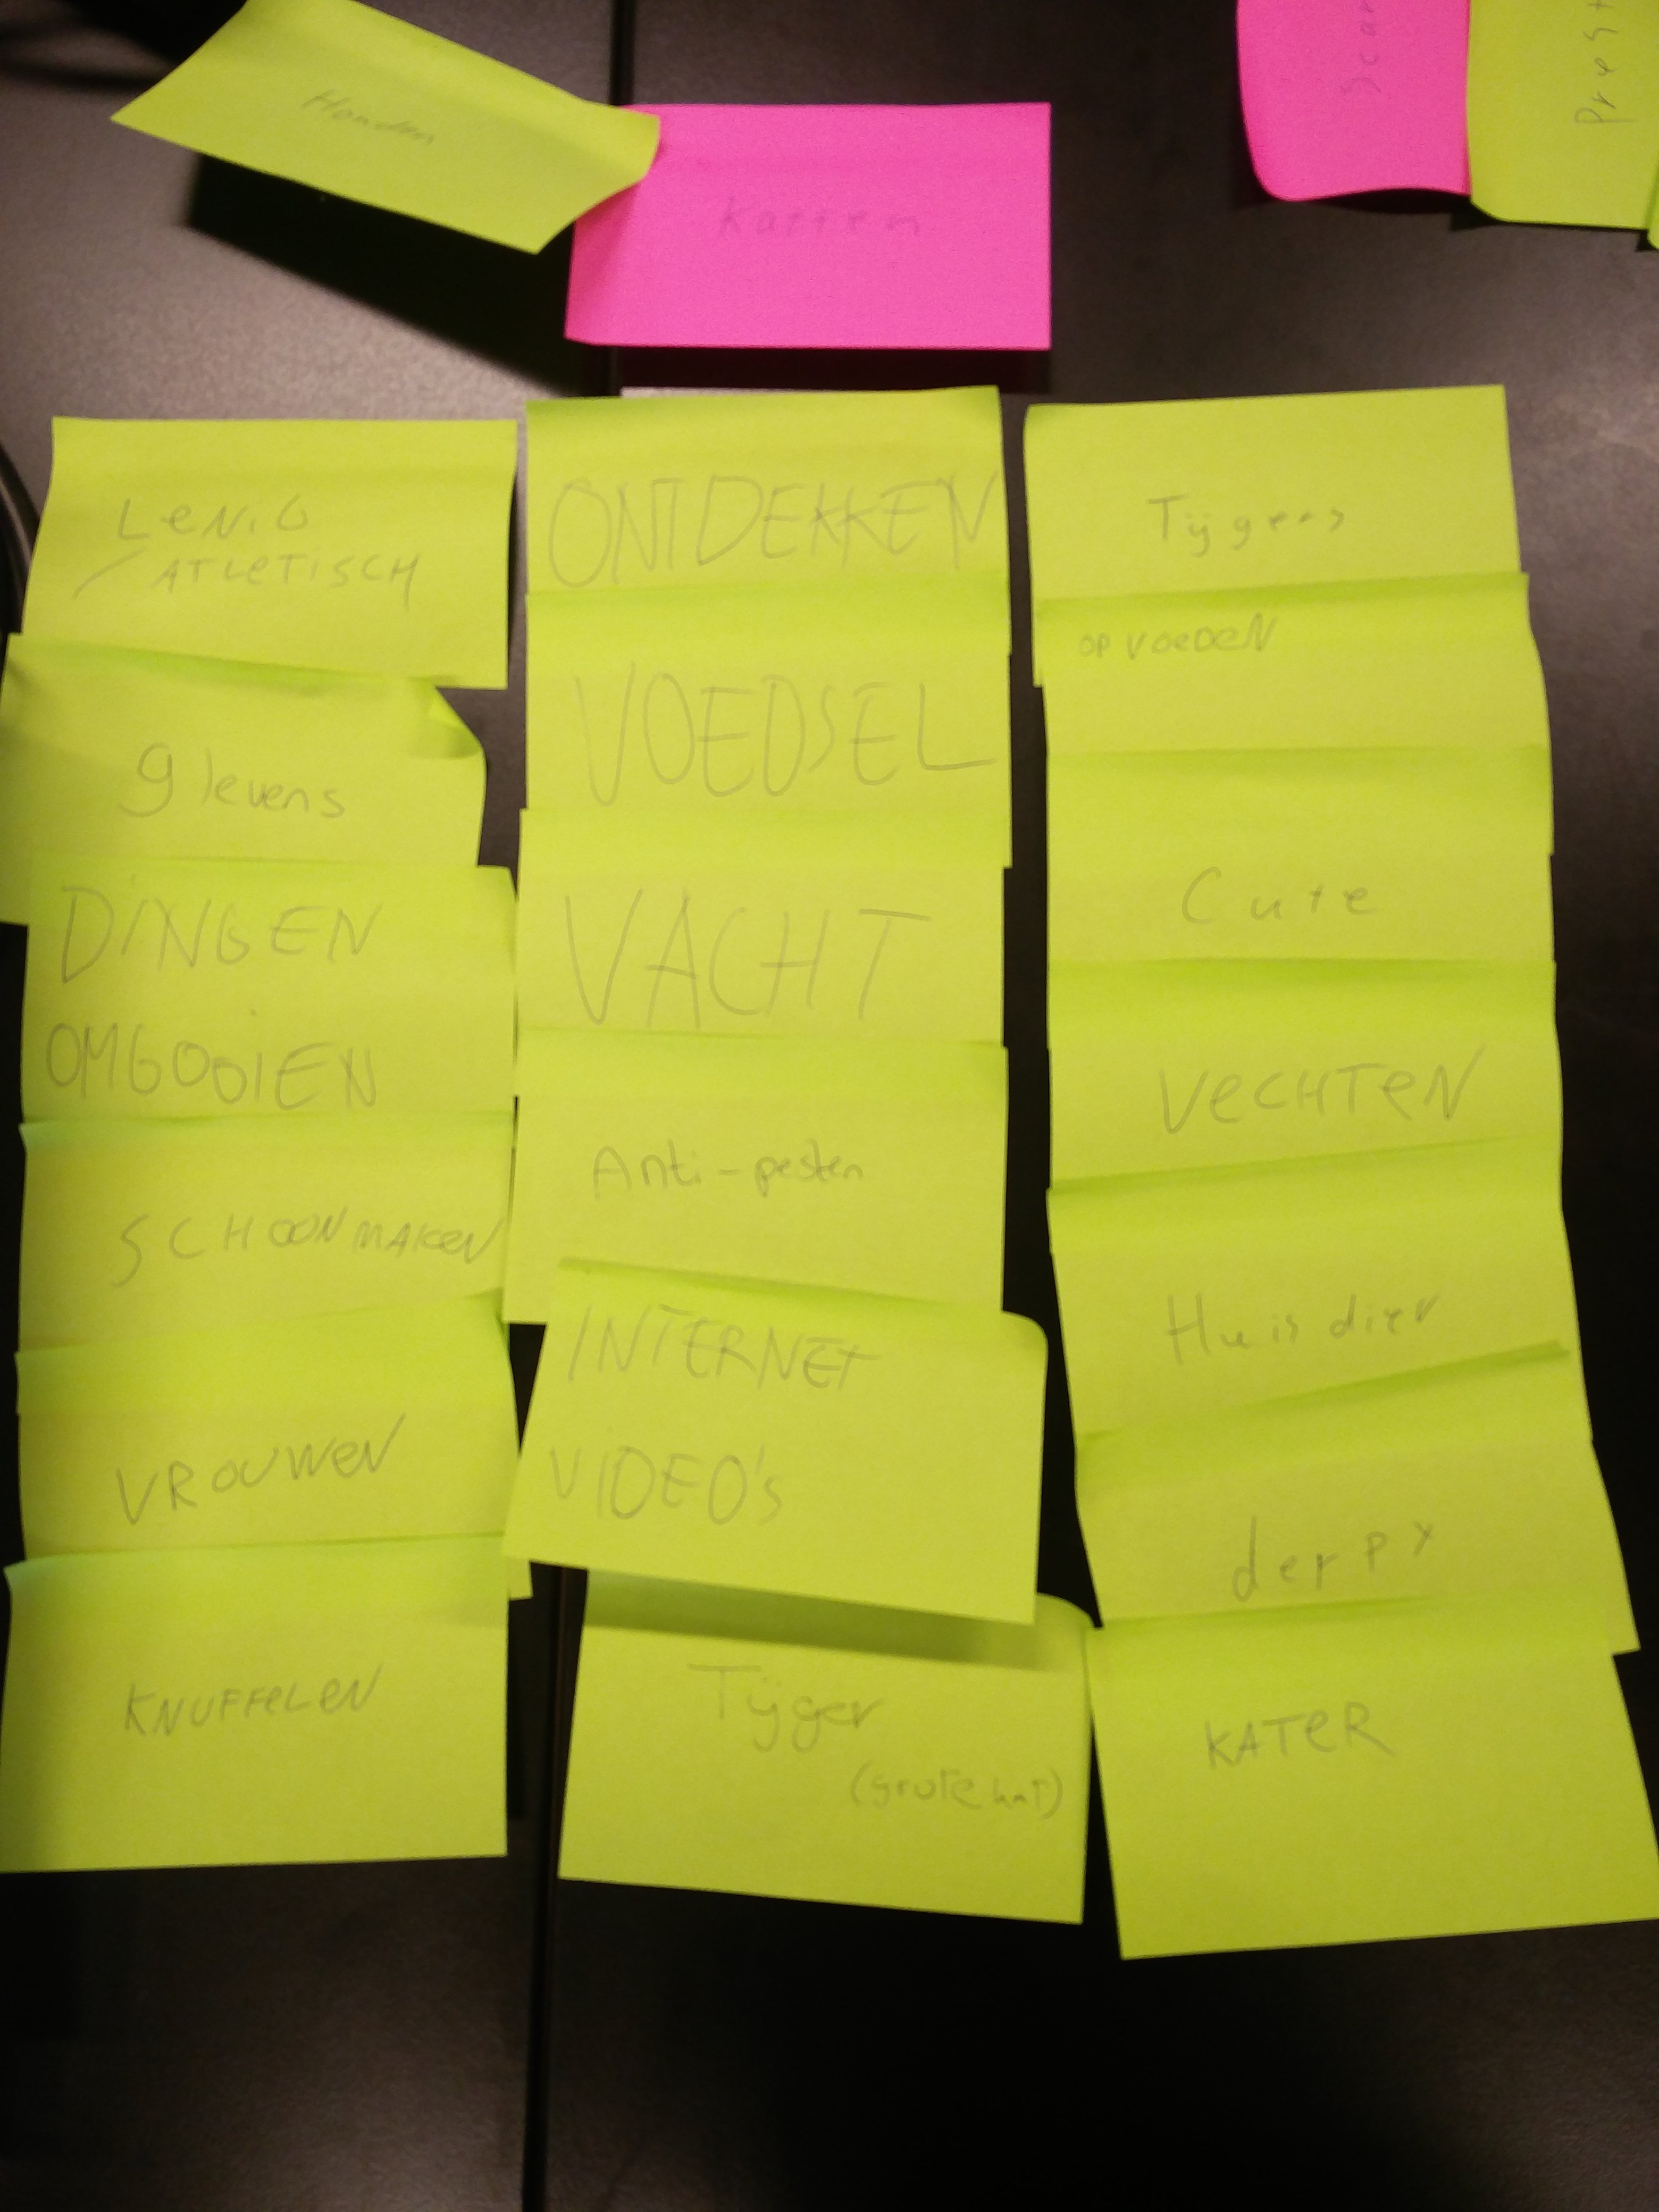 Honden
Katten
LENIG
/ ATLETISCH
9 levens
DINGEN
OMGOOIEN
SCHOONMAKEN
VROUWEN
KNUFFELEN
ONTDEKKEN
VOEDSEL
VACHT
Anti-pesten
INTERNET
VIDEO's
Tijger
(grote kat)
Tijgers
OPVOEDEN
Cute
VECHTEN
Huisdier
derpy
KATER